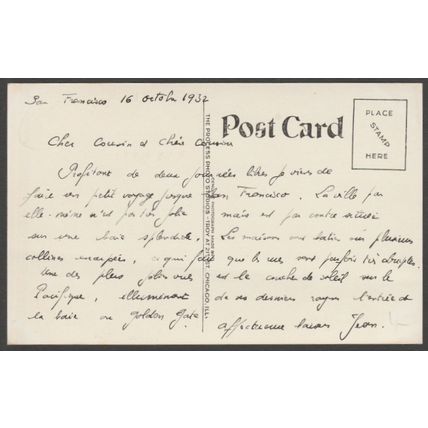 San Francisco 16 octobre 1932
Post Card
PLACE
STAMP
HERE
THE PROCESS PHOTO STUDIOS - TROY AT 21ST ST. CHICAGO, ILL.
Cher Cousin et Chère Cousine
Profitant de deux journées libres je viens de
faire un petit voyage jusque San Francisco. La ville par
elle-même n'est pas très jolie mais est par contre située
sur une baie splendide. Les maisons sont baties sur plusieurs
collines escarpées, ce qui fait que les rues sont parfois très abruptes.
Une des plus jolies vues est le coucher de soleil sur le
Pacifique, illuminant de ses derniers rayons l'entrée de
la baie ou Golden Gate
affectueux baisers Jean.